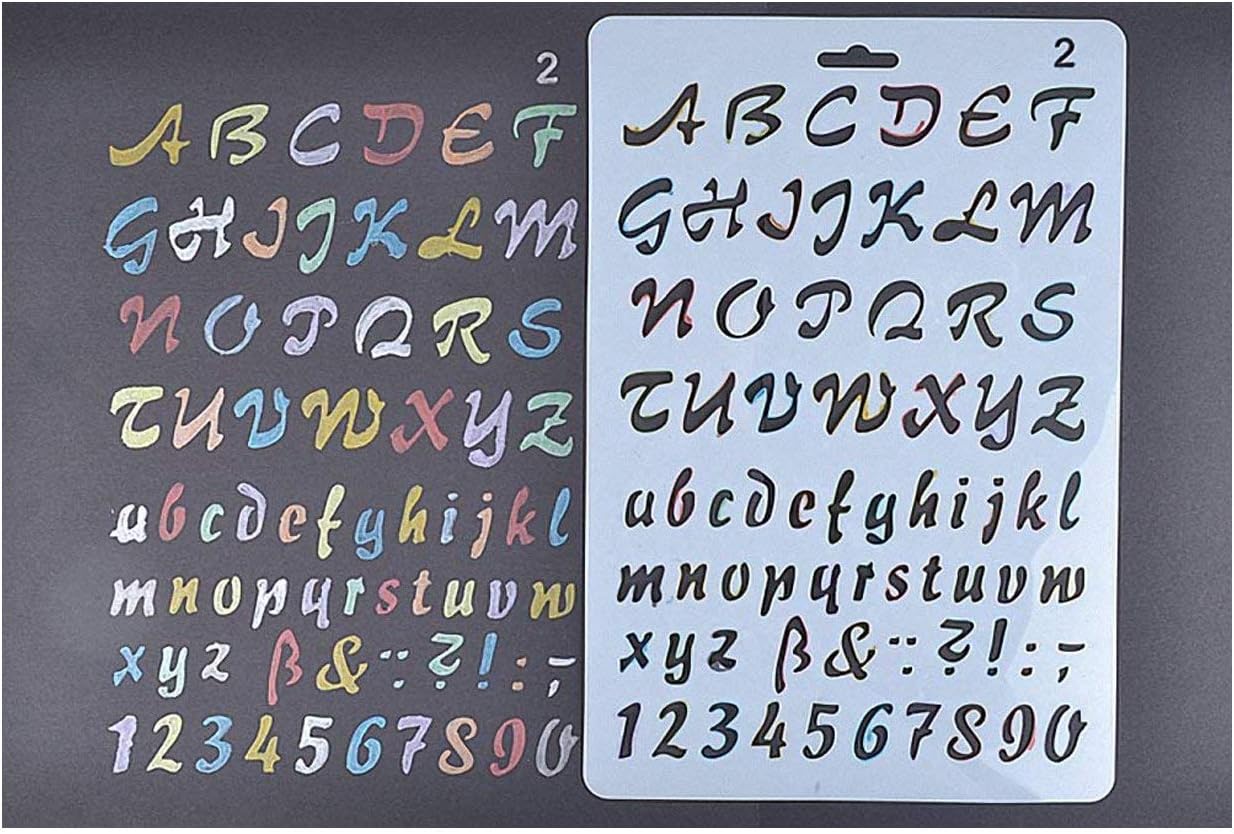 2
A B C D E F
G H I J K L M
N O P Q R S
T U V W X Y Z
a b c d e f g h i j k l
m n o p q r s t u v w
x y z β & : : ? ! : ; -
1 2 3 4 5 6 7 8 9 0
2
A B C D E F
G H I J K L M
N O P Q R S
T U V W X Y Z
a b c d e f g h i j k l
m n o p q r s t u v w
x y z β & : : ? ! : ; -
1 2 3 4 5 6 7 8 9 0